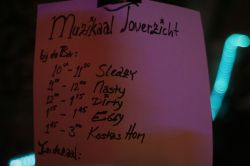 Muzikaal Overzicht
bij de Bar:
10⁰⁰-11⁰⁰ Sleazy
11⁰⁰-12⁰⁰ Nasty
12⁰⁰-1¹⁵ Dirty
1¹⁵-1⁴⁵ Eggy
1⁴⁵-3⁰⁰ Kostas Hom
In de zaal: